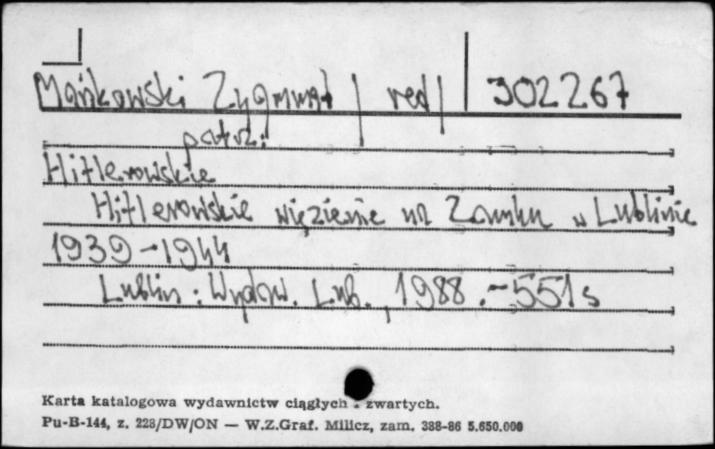 Mańkowski Zygmunt /red/ 302267
patrz:
Hitlerowskie
Hitlerowskie więzienie na Zamku w Lublinie
1939-1944
Lublin: Wydaw. Lub., 1988.-551s
Karta katalogowa wydawnictw ciągłych i zwartych.
Pu-B-144, z. 228/DW/ON — W.Z.Graf. Milicz, zam. 388-86 5.650.000